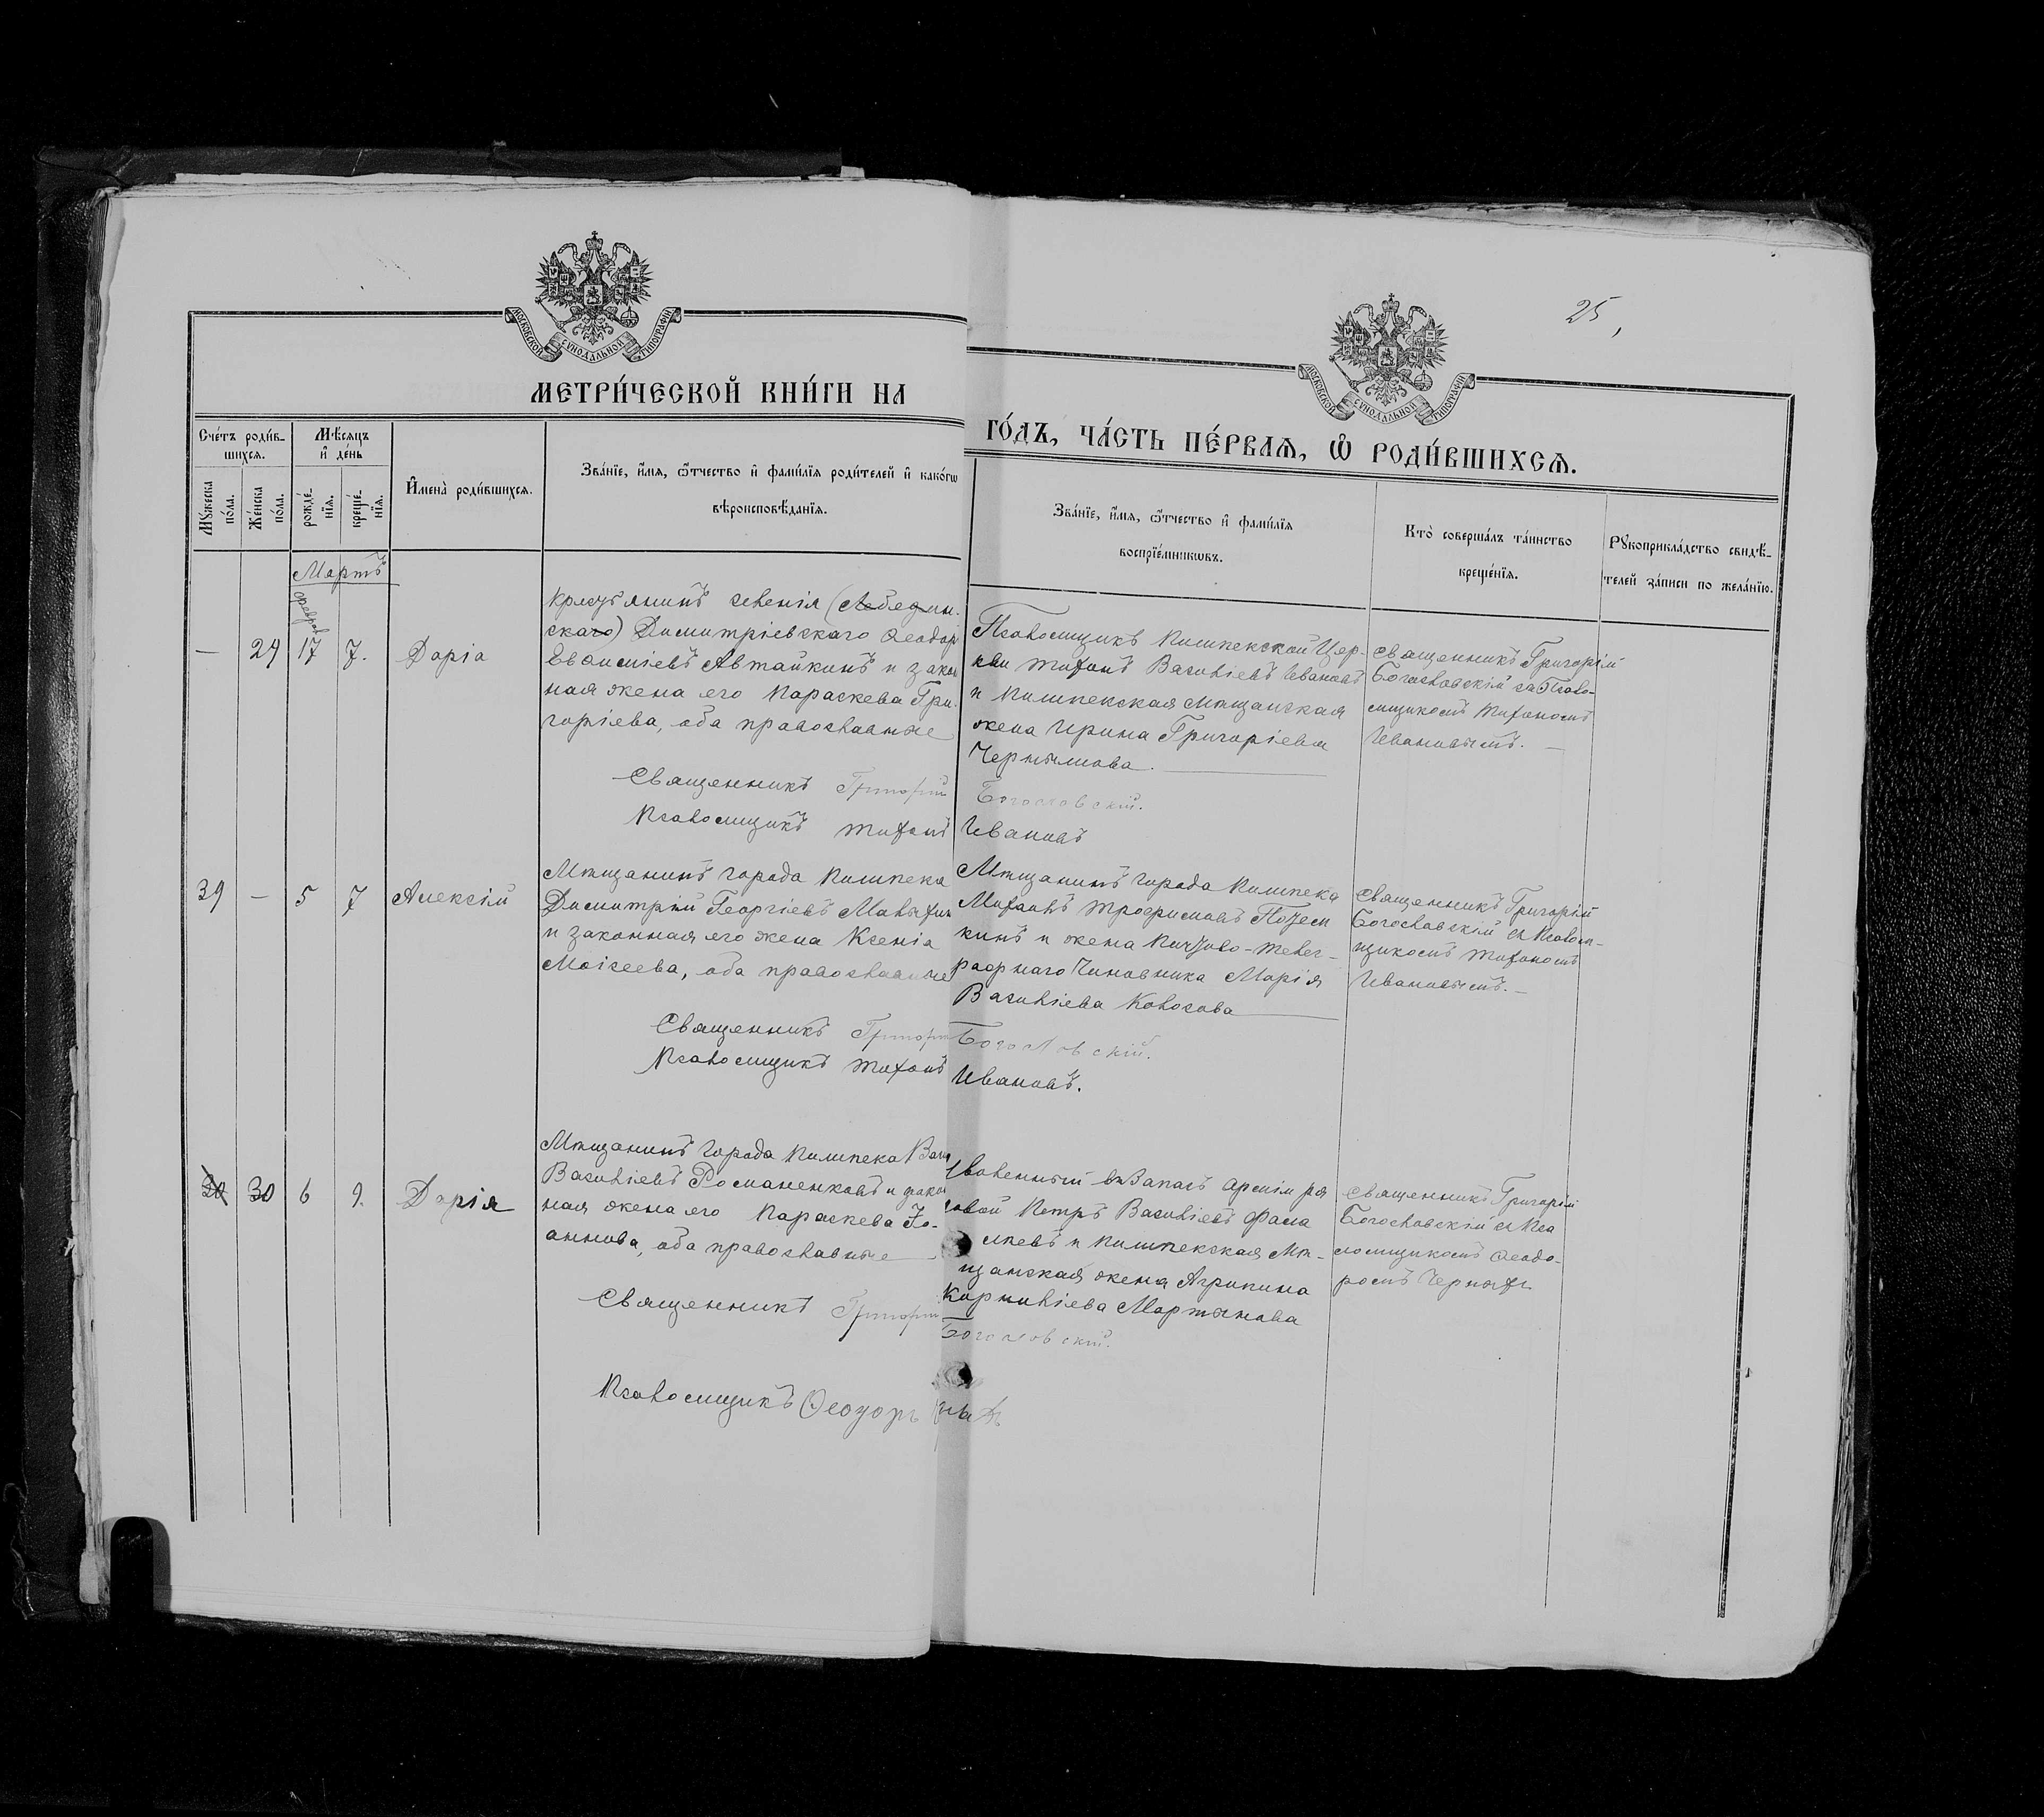 25,
МОСКОВСКОЙ СѴНОДАЛЬНОЙ ТИПОГРАФІИ
МОСКОВСКОЙ СѴНОДАЛЬНОЙ ТИПОГРАФІИ
МЕТРИ́ЧЕСКОЙ КНИ́ГИ НА
ГО́ДЪ, ЧА́СТЬ ПЕ́РВАѦ, Ѽ РОДИ́ВШИХСѦ.
Сче́тъ роди́в-
шихсѧ.
Мꙋ́жеска по́ла.
Же́нска по́ла.
Мѣ́сѧцъ
и҆ де́нь
рожде́-
нїѧ.
креще́-
нїѧ.
И҆мена̀ роди́вшихсѧ.
Зва́нїе, и҆́мѧ, ѻ҆́тчество и҆ фами́лїѧ роди́телей и҆ како́гѡ
вѣроисповѣ́данїѧ.
Зва́нїе, и҆́мѧ, ѻ҆́тчество и҆ фами́лїѧ
воспрїе́мникѡвъ.
Кто̀ соверша́лъ та́инство
креще́нїѧ.
Рꙋкоприкла́дство свидѣ́-
телей за́писи по жела́нїю.
Мартъ
февр
— 29 17 7. Дарія
Крестьянинъ селенія (Лебедин-
скаго) Димитріевскаго Ѳеодоръ
Евѳиміевъ Автайкинъ и закон
ная жена его Параскева Гри-
горіева, оба православные
Псаломщикъ Пишпекской Цер-
кви Тихонъ Васильевъ Ивановъ
и Пишпекская Мѣщанская
жена Ирина Григоріевна
Чернышова.
Священникъ Григорій
Богословскій съ Псало-
мщикомъ Тихономъ
Ивановымъ.
Священникъ Григорій Богословскій.
Псаломщикъ Тихонъ Ивановъ
39 — 5 7 Алексій
Мѣщанинъ города Пишпека
Димитрій Георгіевъ
и законная его жена Ксенія
Моисеева, оба православные
Мѣщанинъ города Пишпека
Михаилъ Трофимовъ
и жена Почтово-Телег-
рафнаго Чиновника Марія
Васильева Колосова
Священникъ Григорій
Богословскій съ Псалом-
щикомъ Тихономъ
Ивановымъ.—
Священникъ Григорій Богословскій.
Псаломщикъ Тихонъ Ивановъ.
30 30 6 9. Дарія
Мѣщанинъ города Пишпека
Васильевъ Романенковъ и закон
ная жена его Параскева Іо-
аннова, оба православные
въ Запасъ Арміи ря
довой Петръ Васильевъ
и Пишпекская Мѣ-
щанская жена Агрипина
Корнильева Мартынова
Священникъ Григорій
Богословскій съ Пса
ломщикомъ Ѳеодо-
ромъ
Священникъ Григорій Богословскій.
Псаломщикъ Ѳеодоръ